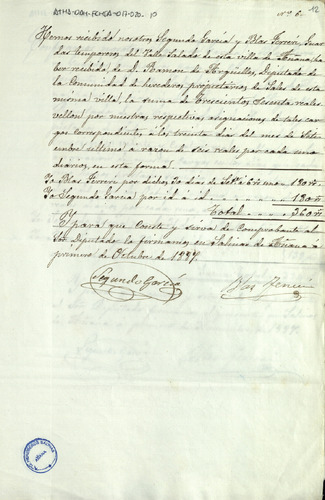 ATHA-DAH-FCHGA-017-020. 10
nº 6.
12
Hemos recibido nosotros Segundo García y Blas Ferrén, Guar
das temporeros del Valle Salado de esta villa de Añana, ha
ber recibido de D. Ramon de Argüelles, Diputado de
la Comunidad de herederos propietarios de Sales de esta
misma villa, la suma de Trescientos Sesenta reales
vellon por nuestras respectivas asignaciones de tales car
gos correspondientes á los treinta dias del mes de Seti
embre ultimo á razon de seis reales por cada uno
diarios, en esta forma
Yo Blas Ferrén por dichos 30 dias de Sete á 6 rs uno 180 rs
Yo Segundo Garcia por id á id 180 rs
Total 360 rs
Y para que conste y sirva de Comprobante al
Sor Diputado la firmamos en Salinas de Añana á
primero de Octubre de 1887.
Segundo García
Blas Ferrén